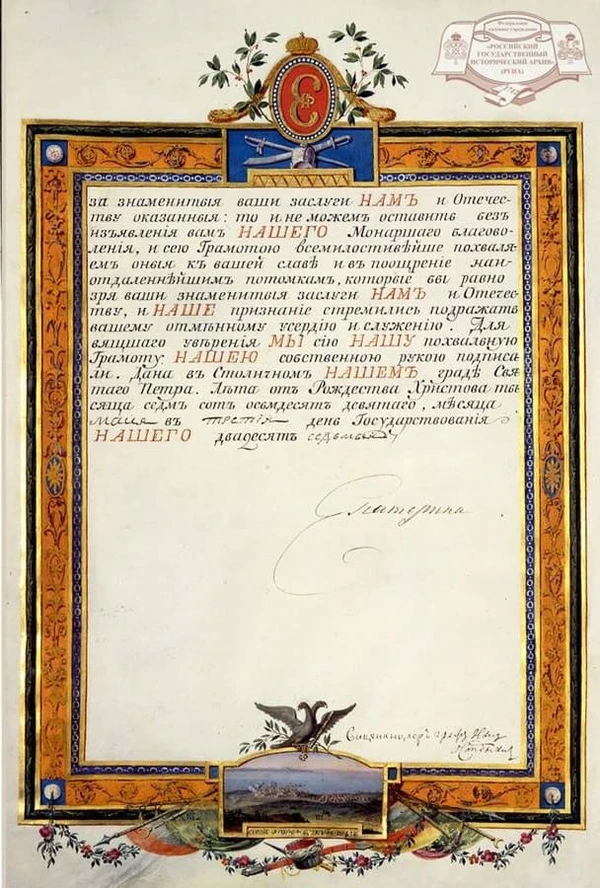 Федеральное
казенное учреждение
«РОССИЙСКИЙ
ГОСУДАРСТВЕННЫЙ
ИСТОРИЧЕСКИЙ АРХИВ»
(РГИА)
за знаменитыя ваши заслуги НАМЪ и Отечес-
тву оказанныя: то и не можемъ оставить безъ
изъявленія вамъ НАШЕГО Монаршаго благово-
ленія, и сею Грамотою всемилостивѣйше похваля-
емъ оныя къ вашей славѣ и въ поощреніе наи-
отдаленнѣйшимъ потомкамъ, которые бы равно
зря ваши знаменитыя заслуги НАМЪ и Отечес
тву, и НАШЕ признаніе стремились подражать
вашему отмѣнному усердію и служенію. Для
вящшаго увѣренія МЫ сію НАШУ похвальную
Грамоту НАШЕЮ собственною рукою подписа
ли. Дана въ Столичномъ НАШЕМЪ градѣ Свя
таго Петра. Лѣта отъ Рождества Христова ты
сяща седмь сотъ осьмдесятъ девятаго, мѣсяца
маія въ третій день Государствованія
НАШЕГО двадесять седьмый
Екатерина
Вицеканцлеръ графъ Иванъ